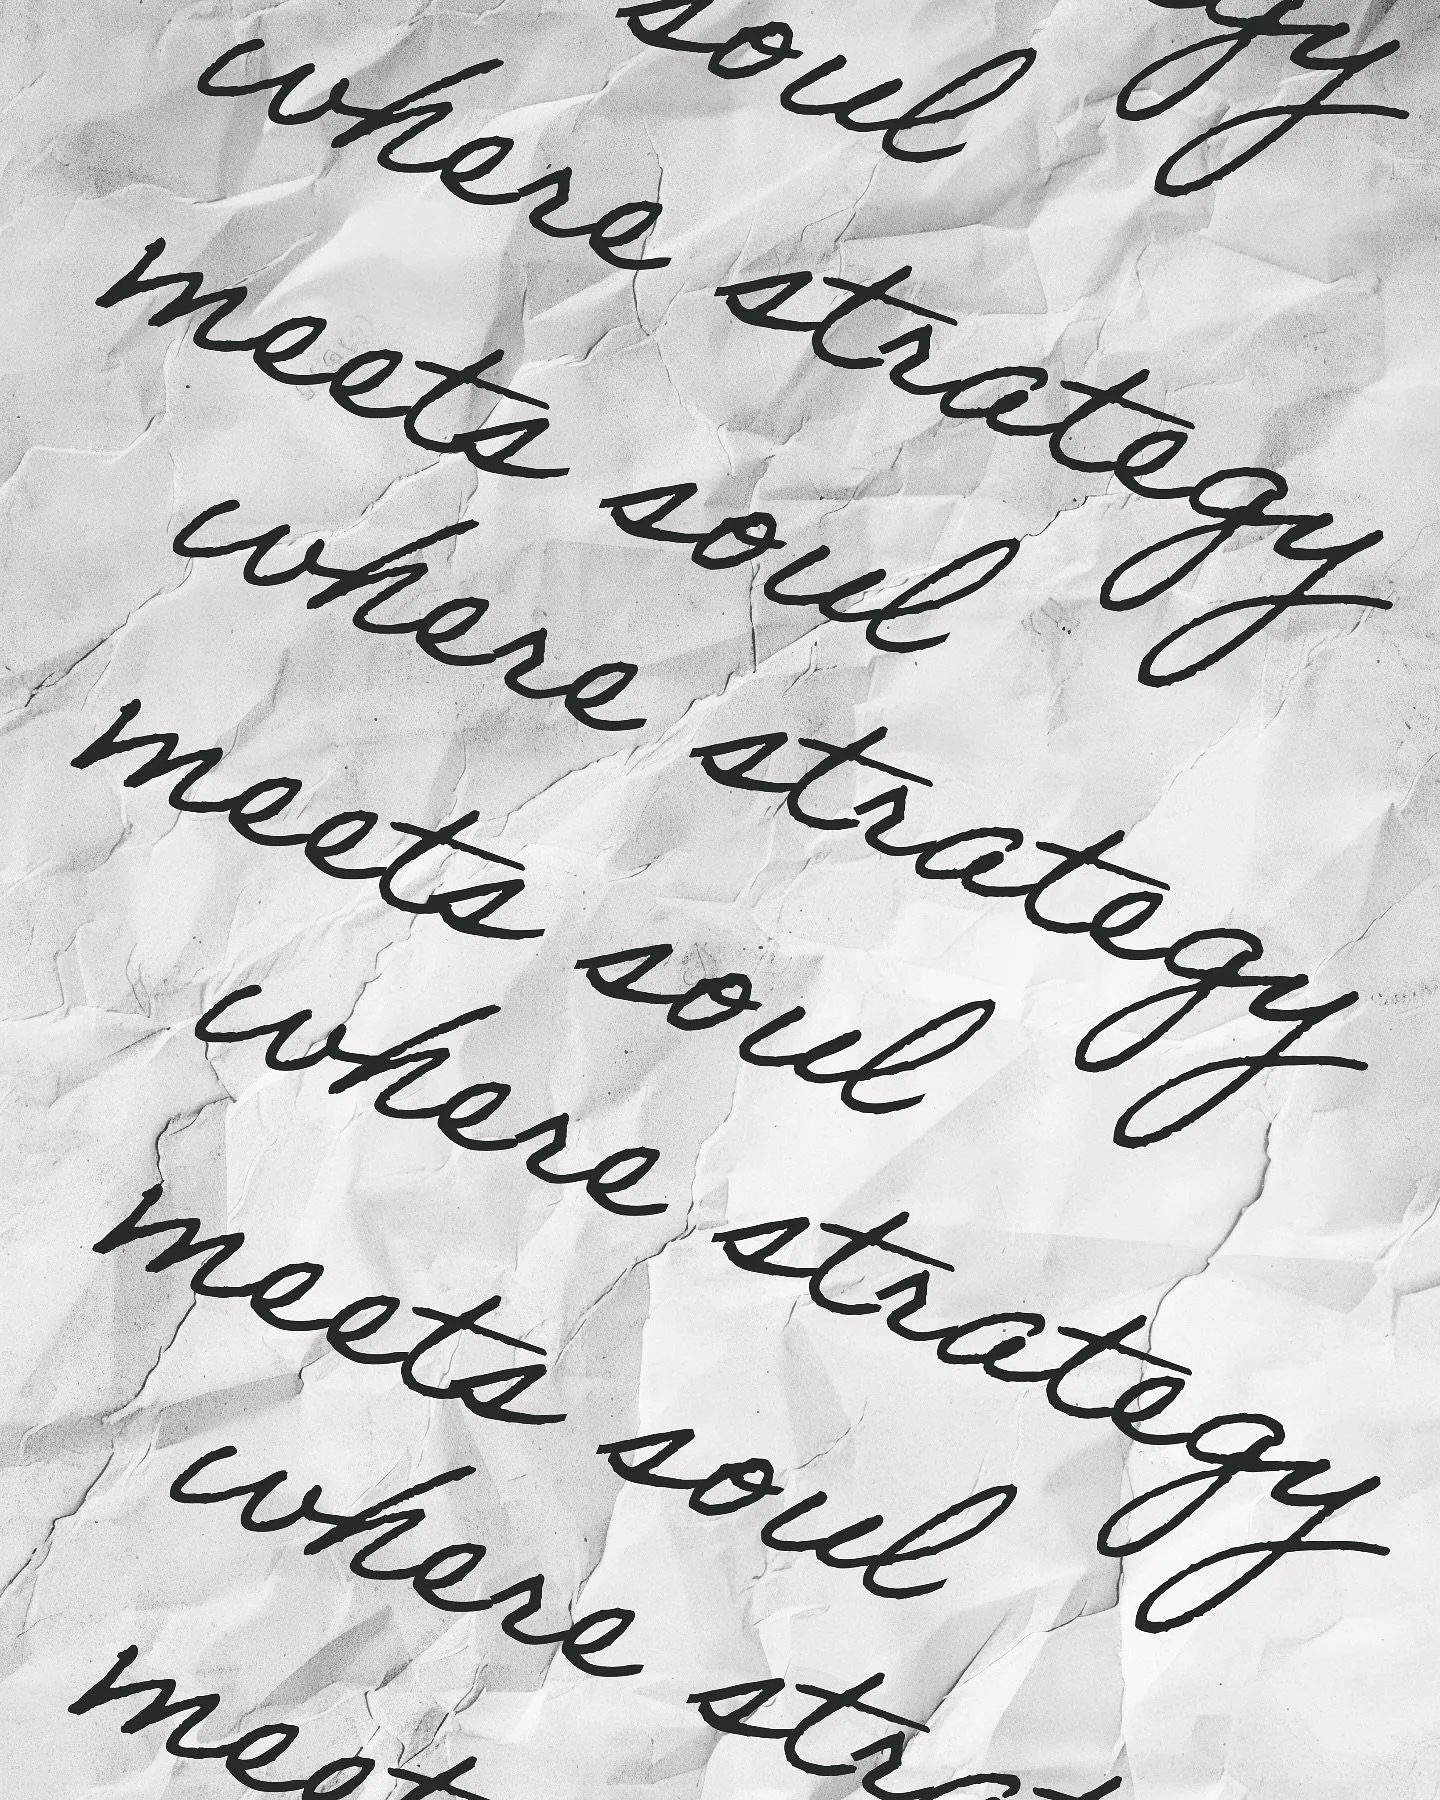 soul
where strategy
meets soul
where strategy
meets soul
where strategy
meets soul
where
meets